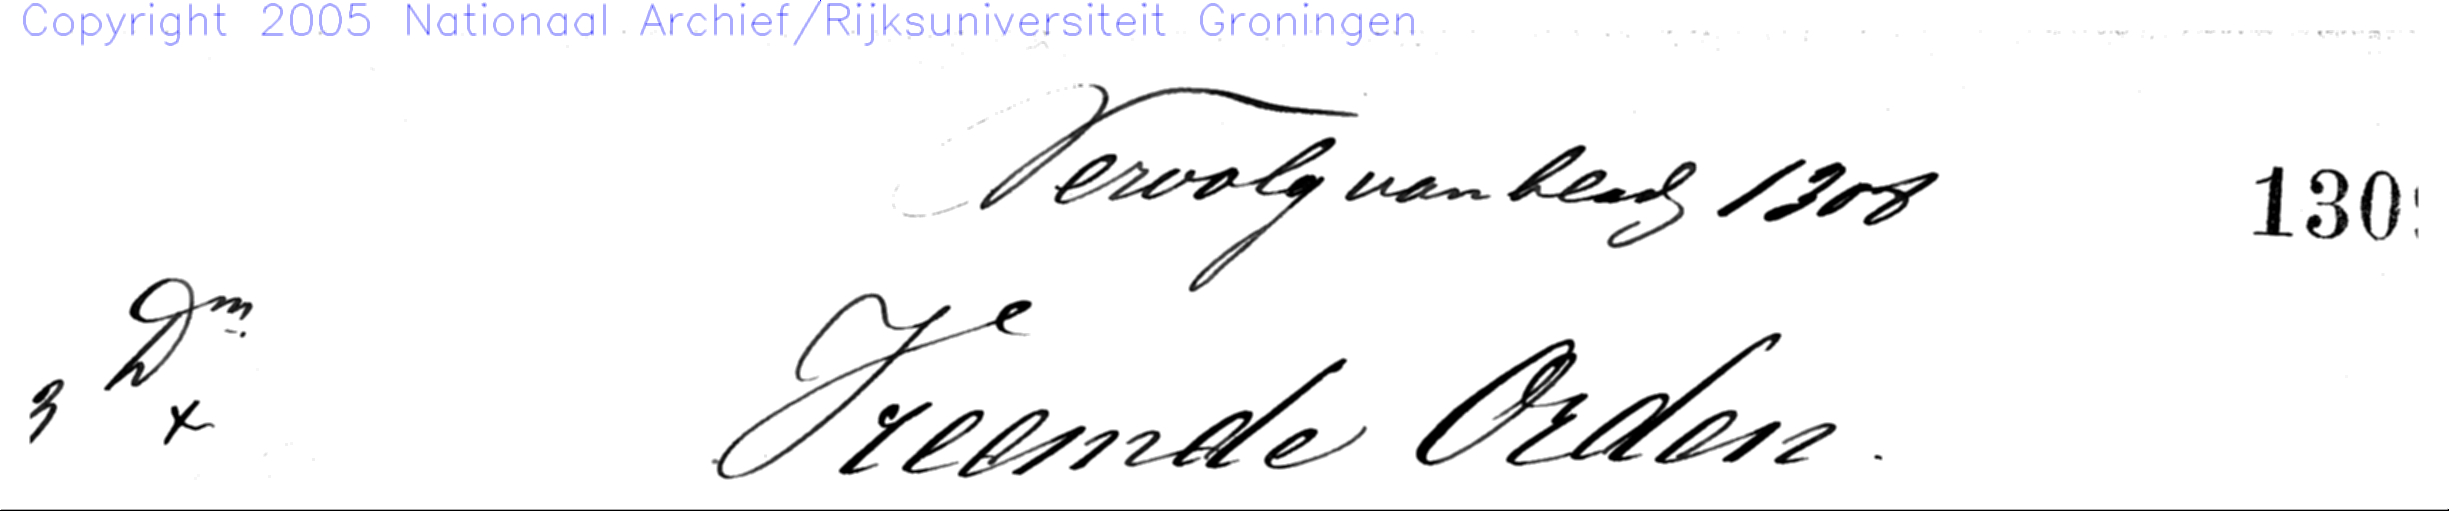 Copyright 2005 Nationaal Archief/Rijksuniversiteit Groningen
Vervolg van bladz 1308
130
Dm
3 x
Vreemde Orden.